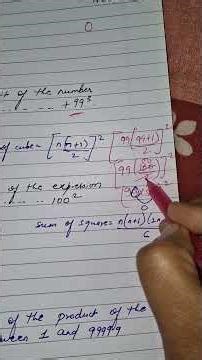 0
of the number
+ 99³
of cube = [n(n+1)/2]² [99(99+1)/2]²
[99
of the expression
100²
sum of square = n(n+1)(2n
6
of the product of the
1 and 99999